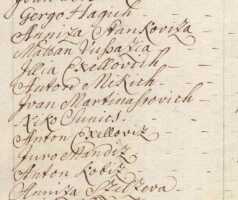 Gergo Hagich
Anniza Stankoviza
Mathan Vussazia
Illia Exellovich
Anton Mikich
Ivan Martinassovich
Kiko Sunics
Anton Exelloviz
Juro Mandiz
Anton Kobiz
Anniza